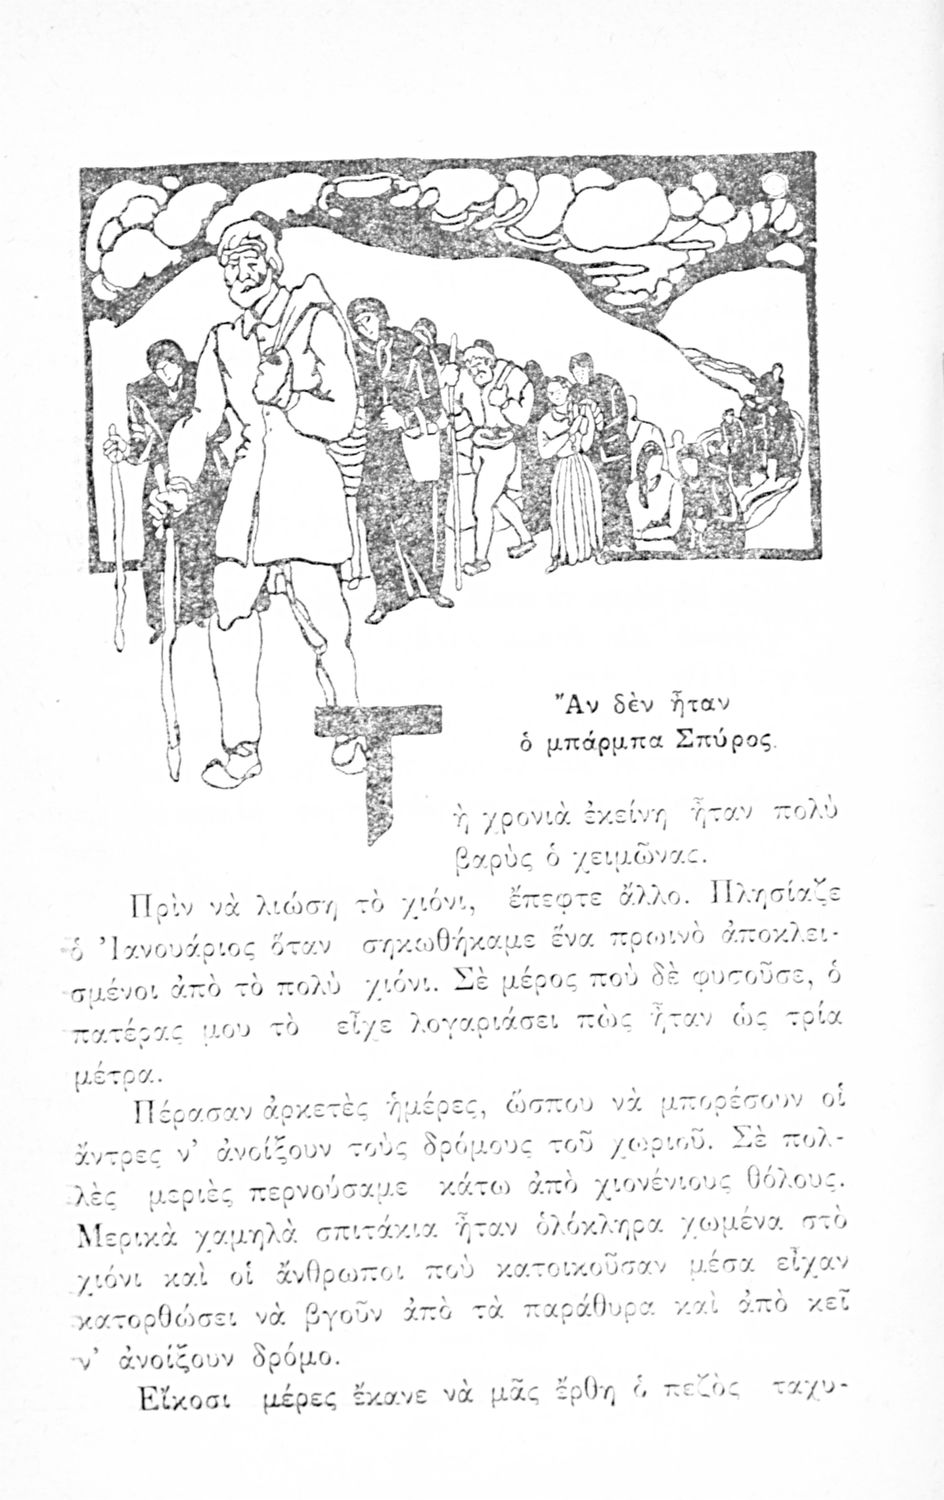 Ἂν δὲν ἦταν
ὁ μπάρμπα Σπύρος.
Τὴ χρονιὰ ἐκείνη ἦταν πολὺ
βαρὺς ὁ χειμῶνας.
Πρὶν νὰ λιώση τὸ χιόνι, ἔπεφτε ἄλλο. Πλησίαζε
ὁ Ἰανουάριος ὅταν σηκωθήκαμε ἕνα πρωινὸ ἀποκλει-
σμένοι ἀπὸ τὸ πολὺ χιόνι. Σὲ μέρος ποὺ δὲ φυσοῦσε, ὁ
πατέρας μου τὸ εἶχε λογαριάσει πὼς ἦταν ὡς τρία
μέτρα.
Πέρασαν ἀρκετὲς ἡμέρες, ὥσπου νὰ μπορέσουν οἱ
ἄντρες ν' ἀνοίξουν τοὺς δρόμους τοῦ χωριοῦ. Σὲ πολ-
λὲς μεριὲς περνούσαμε κάτω ἀπὸ χιονένιους θόλους.
Μερικὰ χαμηλὰ σπιτάκια ἦταν ὁλόκληρα χωμένα στὸ
χιόνι καὶ οἱ ἄνθρωποι ποὺ κατοικοῦσαν μέσα εἶχαν
κατορθώσει νὰ βγοῦν ἀπὸ τὰ παράθυρα καὶ ἀπὸ κεῖ
ν' ἀνοίξουν δρόμο.
Εἴκοσι μέρες ἔκανε νὰ μᾶς ἔρθη ὁ πεζὸς ταχυ-